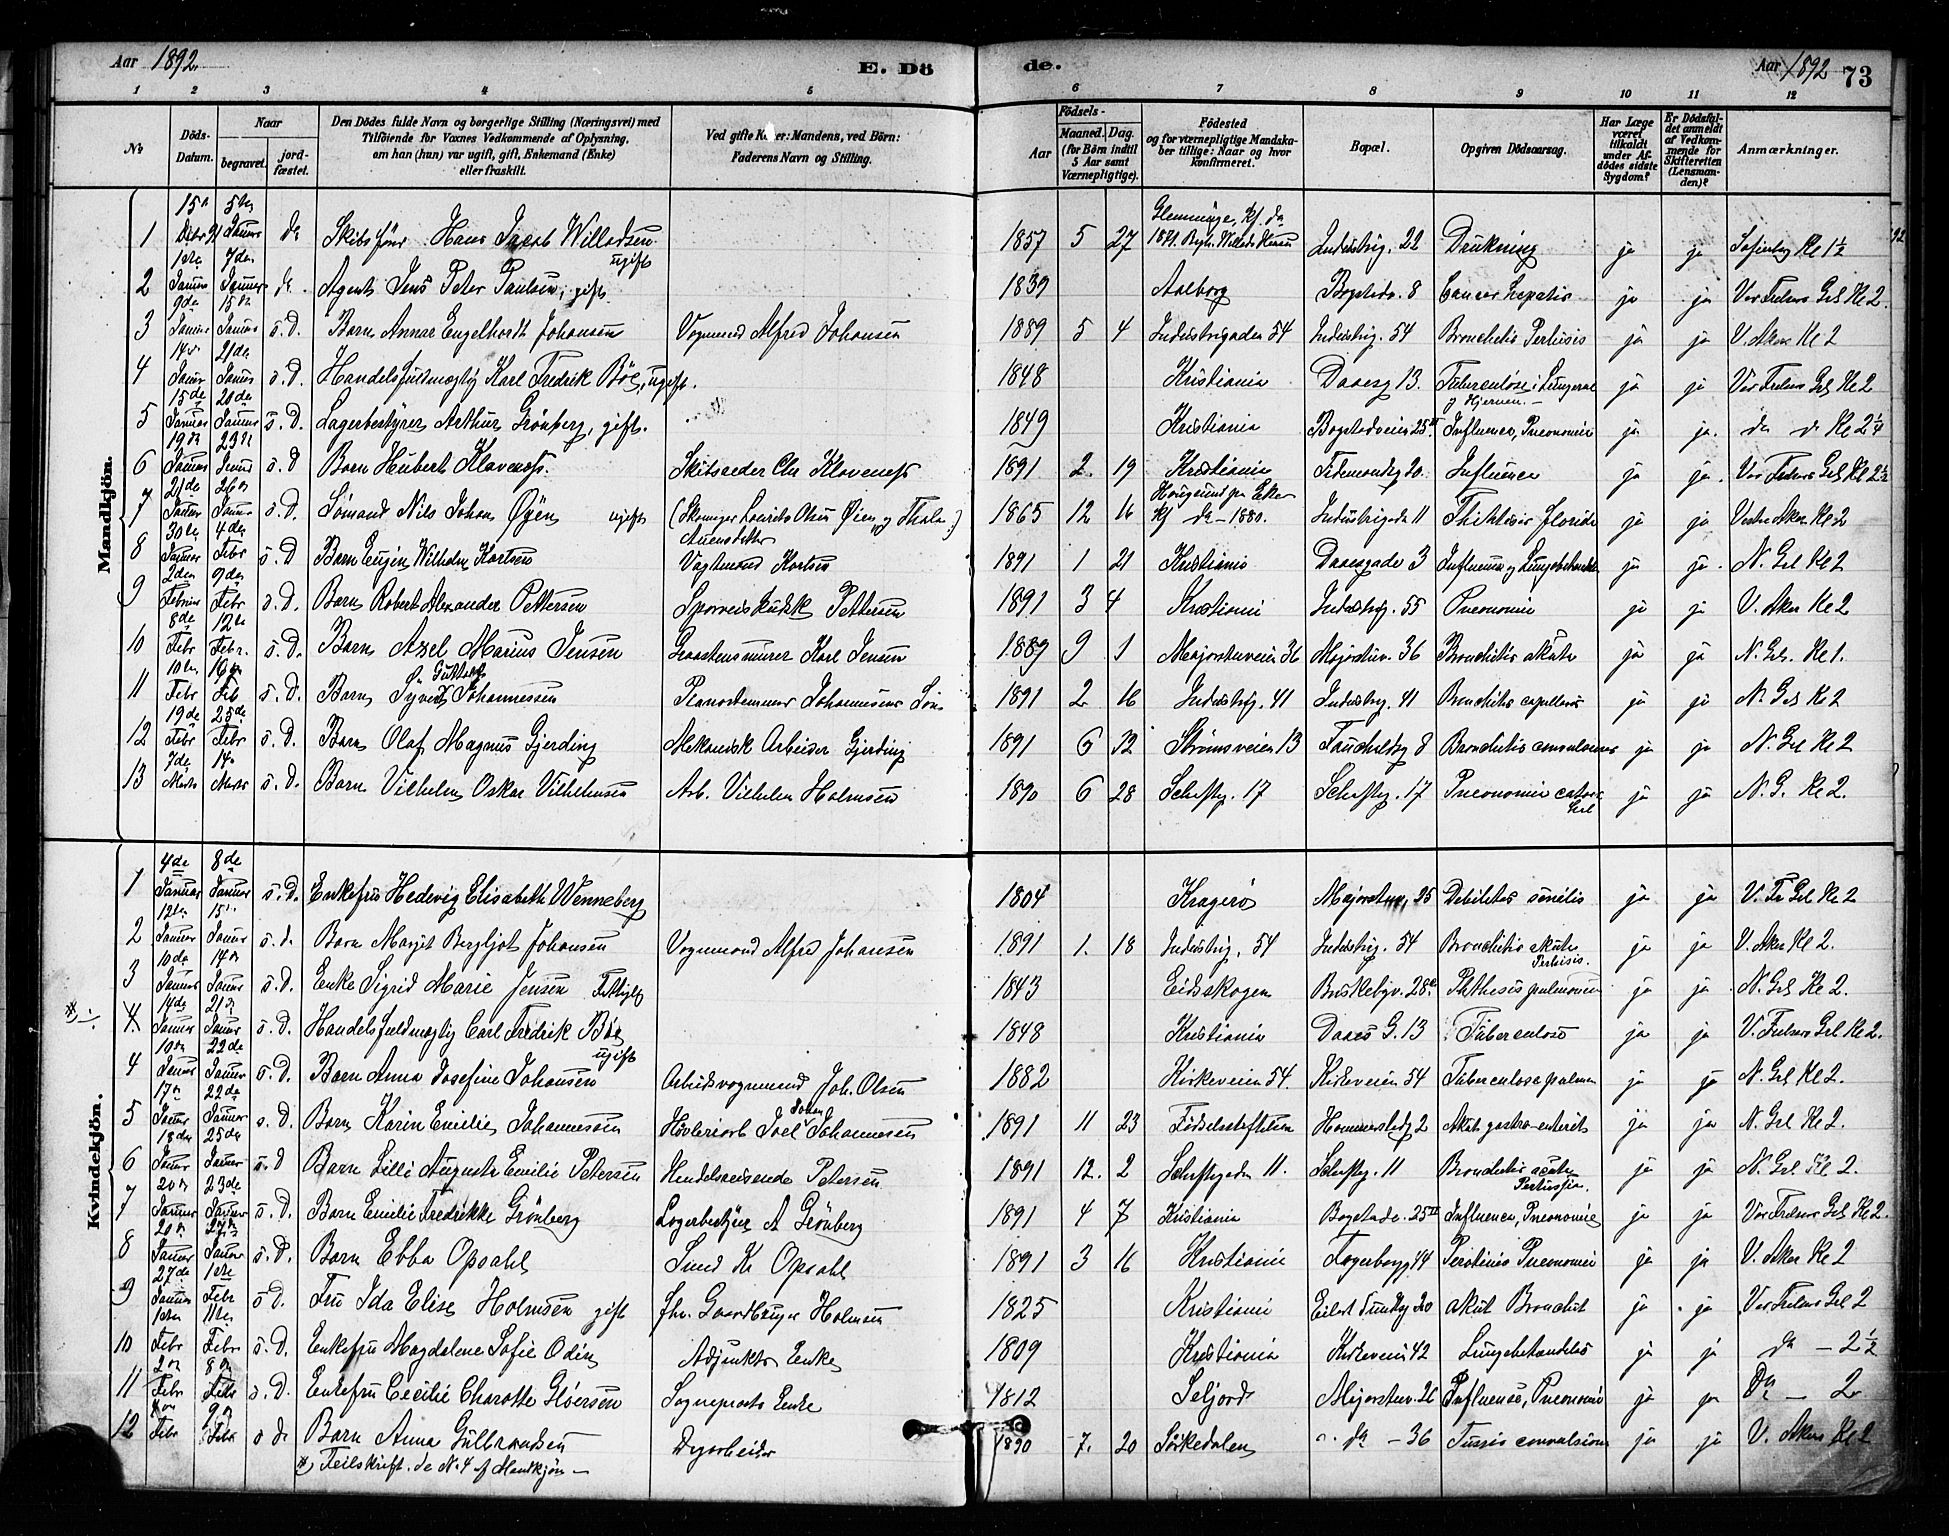 Aar 1892.
E. Dö
de.
Aar 1892
73
1 2 3 4 5 6 7 8 9 10 11 12
No
Döds-Datum.
Naar
begravet.
jord-fæstet.
Den Dödes fulde Navn og borgerlige Stilling (Næringsvei) med
Tilföiende for Voxnes Vedkommende af Oplysning,
om han (hun) var ugift, gift, Enkemand (Enke)
eller fraskilt.
Ved gifte Koner: Mandens, ved Börn:
Faderens Navn og Stilling.
Födsels-
Aar
Maaned. Dag.
(for Börn indtil
5 Aar samt
Værnepligtige).
Födested
og for værnepligtige Mandska-
ber tillige: Naar og hvor
konfirmeret.
Bopæl.
Opgiven Dödsaarsag.
Har Læge
været
tilkaldt
under Af-
dödes sidste
Sygdom?
Er Dödsfal-
det anmeldt
af Vedkom-
mende for
Skifteretten
(Lensman-
den)?
Anmærkninger.
Mandkjön.
1 Skibsfører Hans Jacob Willadsen ugift 1857 5 27 Industrig. 22 Drukning ja ja Sofienberg Kl 1½
2 Januar Januar Agent Jens Peter Paulsen, gift. 1839 Aalborg Bogstadv. 8 Cancer hepatis ja ja Vor Frelsers Grl Kl 2
3 Januar Januar s. D. Barn Annar Engelhardt Johansen Vognmand Alfred Johansen 1889 5 4 Industrigaden 54 Industrig. 54 Bronchitis Pertusis ja ja V. Aker Kl 2
4 Januar Januar s. D. Handelsfuldmægtig Karl Fredrik Böe, ugift. 1848 Kristiania Daaesg 13. Tuberculose i Lungerne og Hjernen. ja ja Vor Frelsers Grl Kl 2
5 Januar Januar s. D. Lagerbestyrer Arthur Grönberg, gift. 1849 Kristiania Bogstadveien 25 II Influenza, Pneumonie ja ja. do do Kl 2¼
6 Januar s. D Barn Hubert Klaveness. Skibsreder Chr Klaveness 1891 2. 19 Kristiania 20. Influenza ja ja. Vor Frelsers Grl Kl 2½
7 Januar s. D. Sömand Nils Johan Öyen ugift 1865 12 16 Kf da – 1880. Industrigade 11 Phthisis florida ja ja Vestre Aker Kl 2
8 Januar Febr s. D Barn Eugen Wilhelm Kortsen Vagtmand Kortsen 1891 1 21 Kristiania Daaesgade 3 Influenza og Lungebetændelse ja ja. N. Grl Kl 2
9 Februar Febr s. D. Barn Robert Alexander Pettersen Sporveiskudsk Pettersen 1891 3 4 Kristiania Industrig. 55 Pneumonie ja ja V. Aker Kl 2
10 Febr Febr. s. D. Barn Axel Marius Jensen Graastensmurer Karl Jensen 1889 9 1 Majorstuveien 36 Majorstuv. 36 Bronchitis akuta ja ja N. Grl. Kl 1.
11 Febr Feb s. D. Barn Johannessen Pianostemmer Johannesen 1891 2 16 Industrig. 41 Industrig. 41 Bronchitis capillaris ja ja N. Grl Kl 2
12 Febr Febr s. D. Barn Olaf Magnus Gjerding Mekanisk Arbeider Gjerding 1891 6 12 Strömsveien 13 Fauchaldsg 8 Bronchitis ja ja N. Grl Kl 2
13 Marts Marts s. D. Barn Vilhelm Oskar Vilhelmsen Arb. Vilhelm Holmsen 1890 6 28 Schultzg. 17 Schultzg. 17 Pneumonie ja ja N. G. Kl 2.
Kvindekjön.
1 Januar Januar s. D. Enkefru Hedevig Elisabeth Wenneberg 1804 Kragerö Majorstuv. 25 Debilitas senilis ja ja V. Fr Grl Kl 2
2 Januar Januar s. D. Barn Margit Bergljot Johansen Vognmand Alfred Johansen 1891 1. 18 Industrig. 54 Industrig. 54 Bronchitis akuta Pertusis. ja ja V. Aker Kl 2.
3 Januar Januar s. D. Enke Sigrid Marie Jensen 1843 Eidsskogen Briskebyv. 28 Phthesis pulmonum ja ja N. Grl Kl 2.
4 Januar Januar s. D. Handelsfuldmægtig Carl Fredrik Böe ugift 1848 Kristiania Daaes G. 13 Tuberculose ja ja V. Frelsers Grl Kl 2.
4 Januar Januar s. D. Barn Anna Josefine Johansen Arbeidsvognmand Joh. Olsen 1882 Kirkeveien 54. Kirkeveien 54 Tuberculose pulmon ja ja N. Grl Kl 2.
5 Januar Januar s. D. Barn Karin Emilie Johannessen Hövleriarb Joel Johan Johannesen 1891 11 23 Födselsstiftelsen Hammerstadg 2 Akut gastro-enterit ja ja N. Grl Kl 2.
6 Januar Januar s. D Barn Lilli Augusta Emilie Petersen Handelsreisende Petersen 1891 12. 2 Schultzgaden 11. Schultzg. 11 Bronchitis acuta Pertussis. ja ja N. Grl Kl 2.
7 Januar Januar s. D. Barn Emilie Fredrikke Grönberg Lagerbestyrer A Grönberg 1891 4 7 Kristiania Bogstadv. 25 II Influenza, Pneumonie ja ja Vor Frelsers Grl Kl 2.
8 Januar Januar s. D. Barn Ebba Opsahl Smed K Opsahl 1891 3 16 Kristiania Fagerborgg 44 Pneumonie ja ja V. Aker Kl 2
9 Januar Febr s D. Fru Ida Elise Holmsen gift fhv. Gaardbruger Holmsen 1825 Kristiania Eilert Sundtsg 20 akut Bronchit ja ja Vor Frelsers Grl 2
10 Febr Febr s. D. Enkefru Magdalene Sofie Odén Adjunkts Enke 1809 Kristiania Kirkeveien 42 Lungebetændelse ja ja do – 2½
11 Febr Febr s. D. Enkefru Cecilie Charlotte Glöersen Sogneprests Enke 1812 Seljord Majorstuv. 26 Influensa, Pneumonie ja ja Do – 2
12 Febr Febr s D. Barn Anna Gulbrandsen Dagarbeider 1890 7. 20 Sörkedalen do – 36 Tussis convulsiva ja ja V. Aker Kl 2
*) Feilskrift. se No. 4 af Mandkjön –